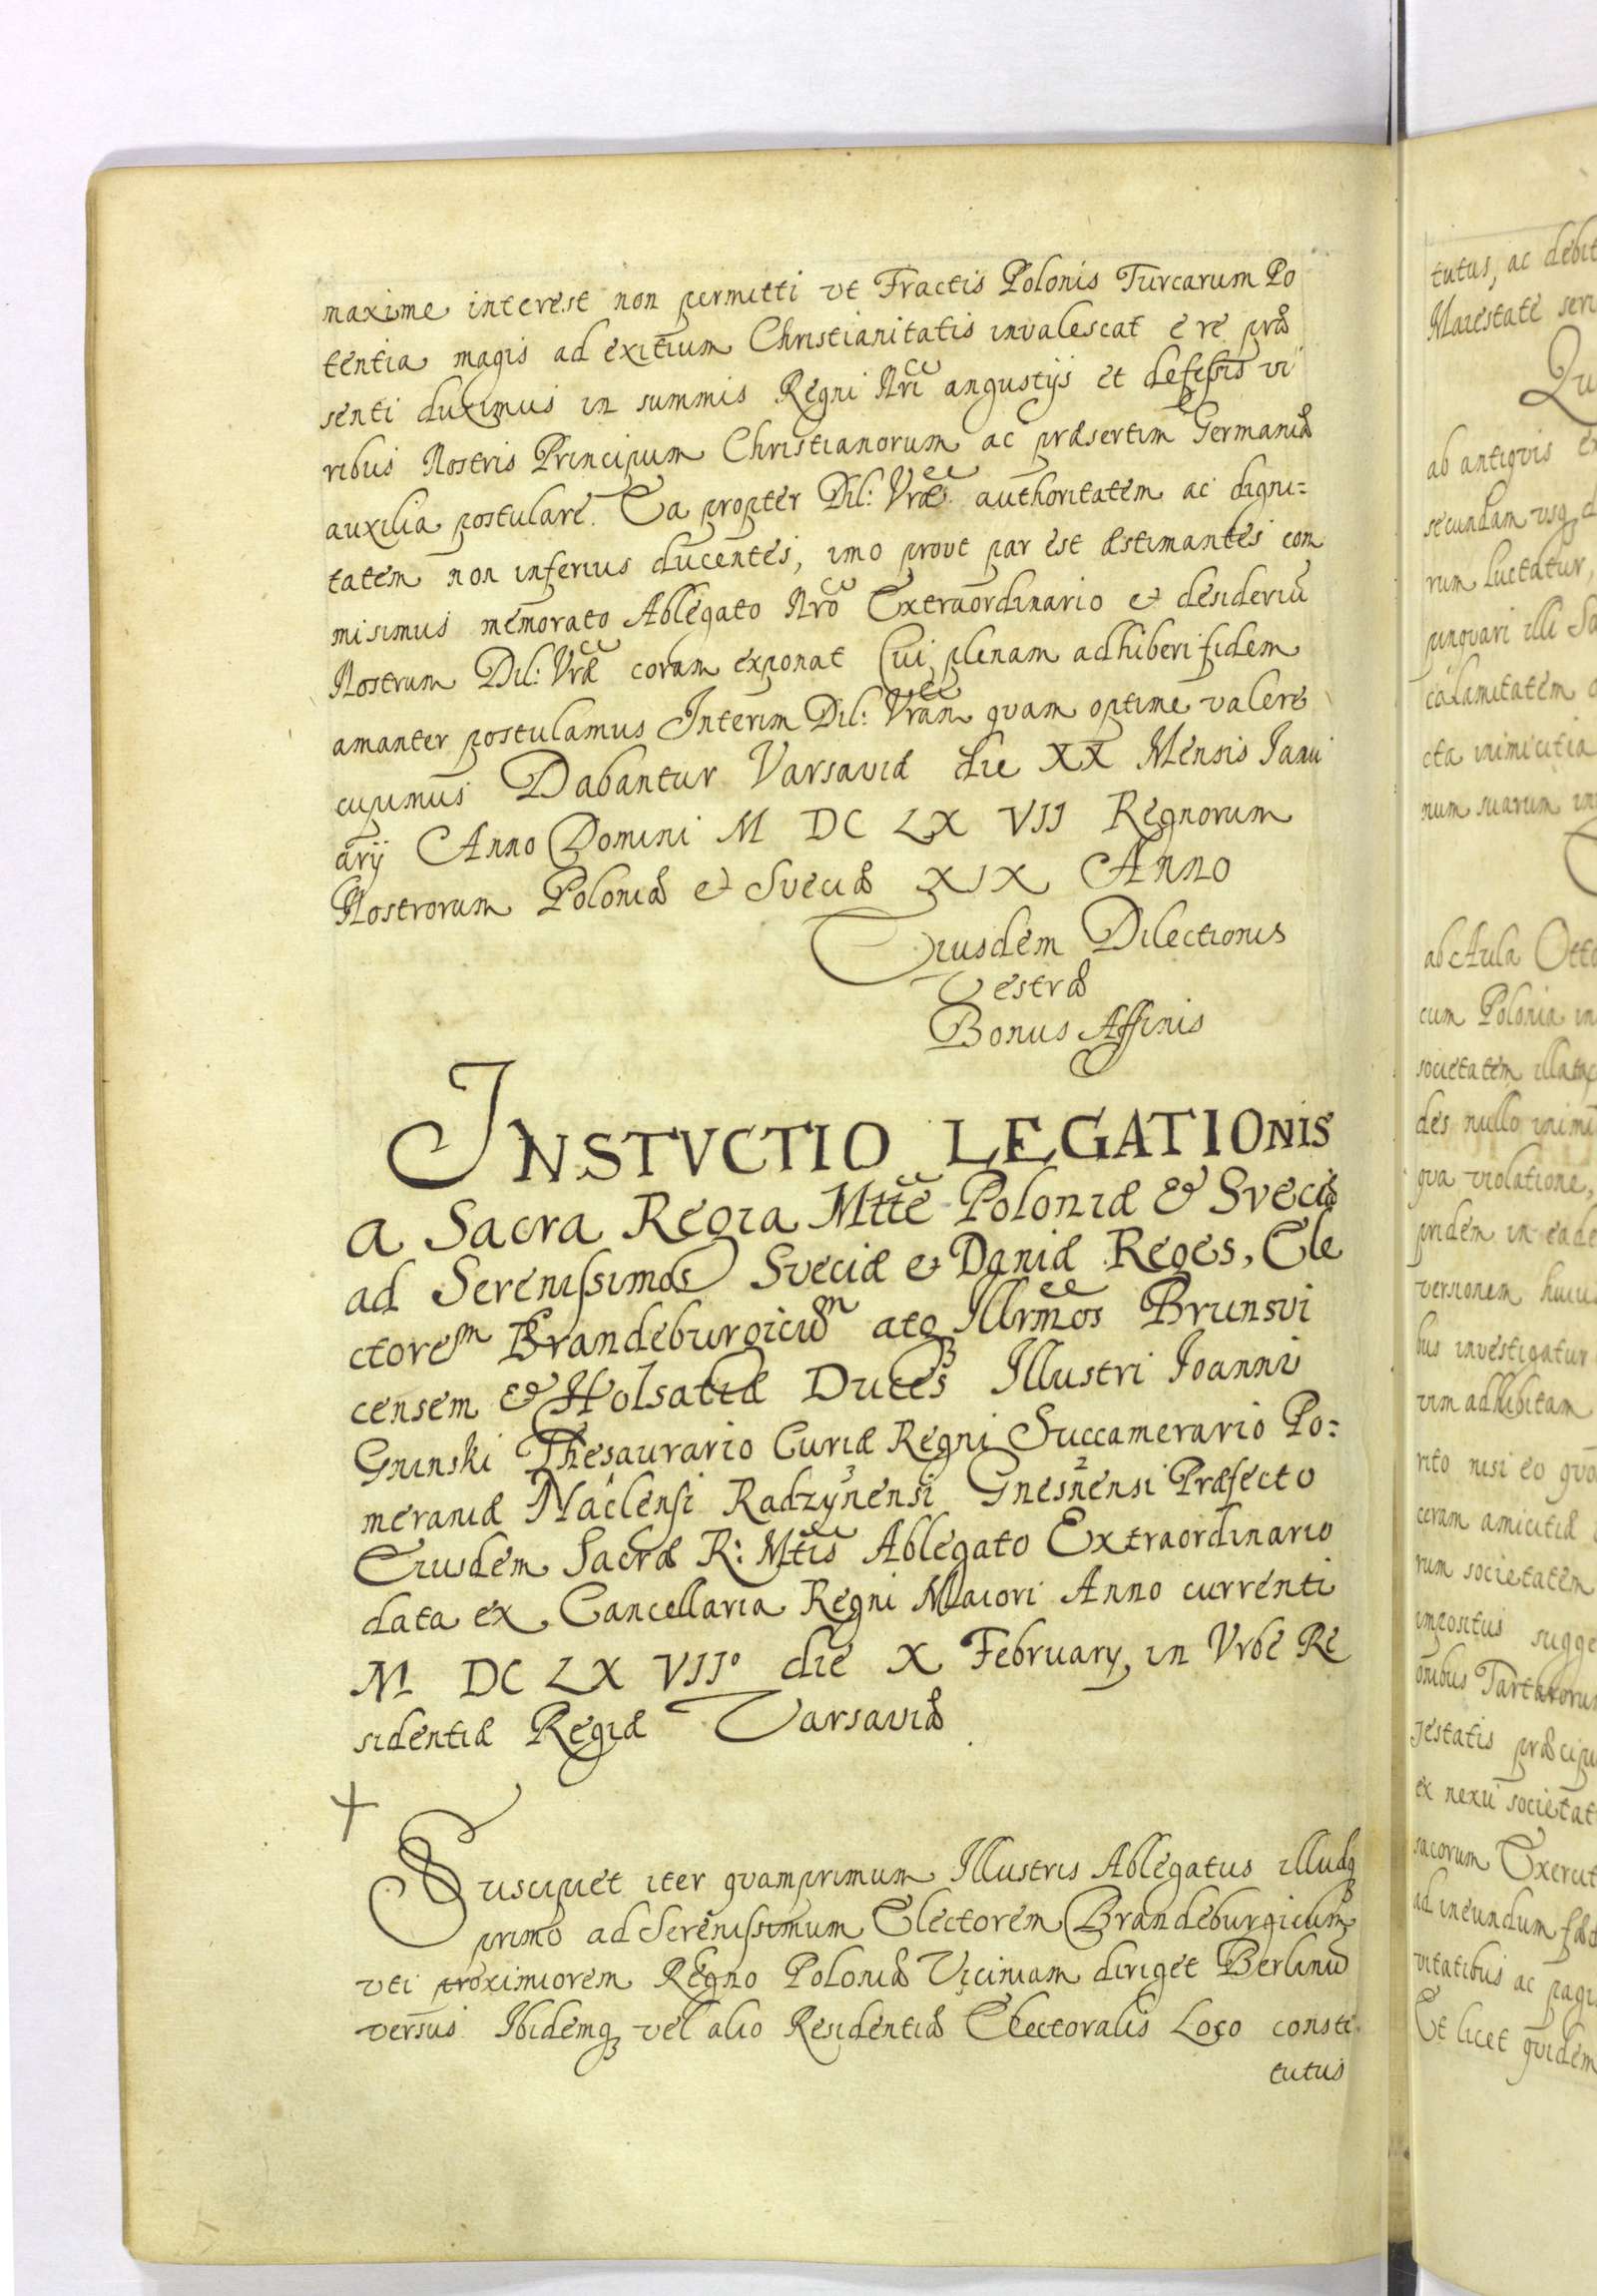 maxime interest non permitti vt Fractis Polonis Turcarum Po
tentia magis ad exitium Christianitatis invalescat e re præ
senti duximus in summis Regni Nri angustijs et defessis vi
ribus Nostris Principum Christianorum ac præsertim Germaniæ
auxilia postulare. Ea propter Dil: Vræ authoritatem ac digni=
tatem non inferius ducentes, imo prout par est æstimantes com
misimus memorato Ablegato Nro Extraordinario et desideriū
Nostrum Dil: Vræ coram exponat Cui plenam adhiberi fidem
amanter postulamus Interim Dil: Vram quam optime valere
cupimus Dabantur Varsaviæ die XX Mensis Janu
arij Anno Domini M DC LX VII Regnorum
Nostrorum Poloniæ et Sveciæ XIX Anno
Eiusdem Dilectionis
Vestræ
Bonus Affinis
INSTVCTIO LEGATIONIS
a Sacra Regia Mtte Poloniæ & Sveciæ
ad Serenissimos Sveciæ et Daniæ Reges, Ele
ctorem Brandeburgicum atq Illrmos Brunsvi
censem & Holsatiæ Duces Illustri Joanni
Gninski Thesaurario Curiæ Regni Succamerario Po=
meraniæ Naclensi Radzynensi Gnesnensi Præfecto
Eiusdem Sacræ R: Mtis Ablegato Extraordinario
data ex Cancellaria Regni Maiori Anno currenti
M DC LX VIIo die X February in Vrbe Re
sidentiæ Regiæ Varsaviæ
Suscipiet iter quamprimum Illustris Ablegatus illudq
primo ad Serenissimum Electorem Brandeburgicum
vti proximiorem Regno Poloniæ Viciniam diriget Berlinū
versus Ibidemq vel alio Residentiæ Electoralis Loco consti
tutus
tutus, ac debit
Maiestate seri
Qu
ab antiquis ex
secundam vsq d
rum luctatur,
calamitatem
cta inimicitia
num suarum
ab Aula Otto
cum Polonia in
societatem illa
des nullo inimi
qua violatione,
pridem in eade
versionem huiu
bus investigatur
vim adhibitam
rito nisi eo quo
ceram amicitiæ
rum societatem
impositus sugge
onibus Tartarorum
jestatis præcipu
ex nexu societat
sacorum Exercit
ad ineundum fæd
vitatibus ac pagi
Et licet quidem